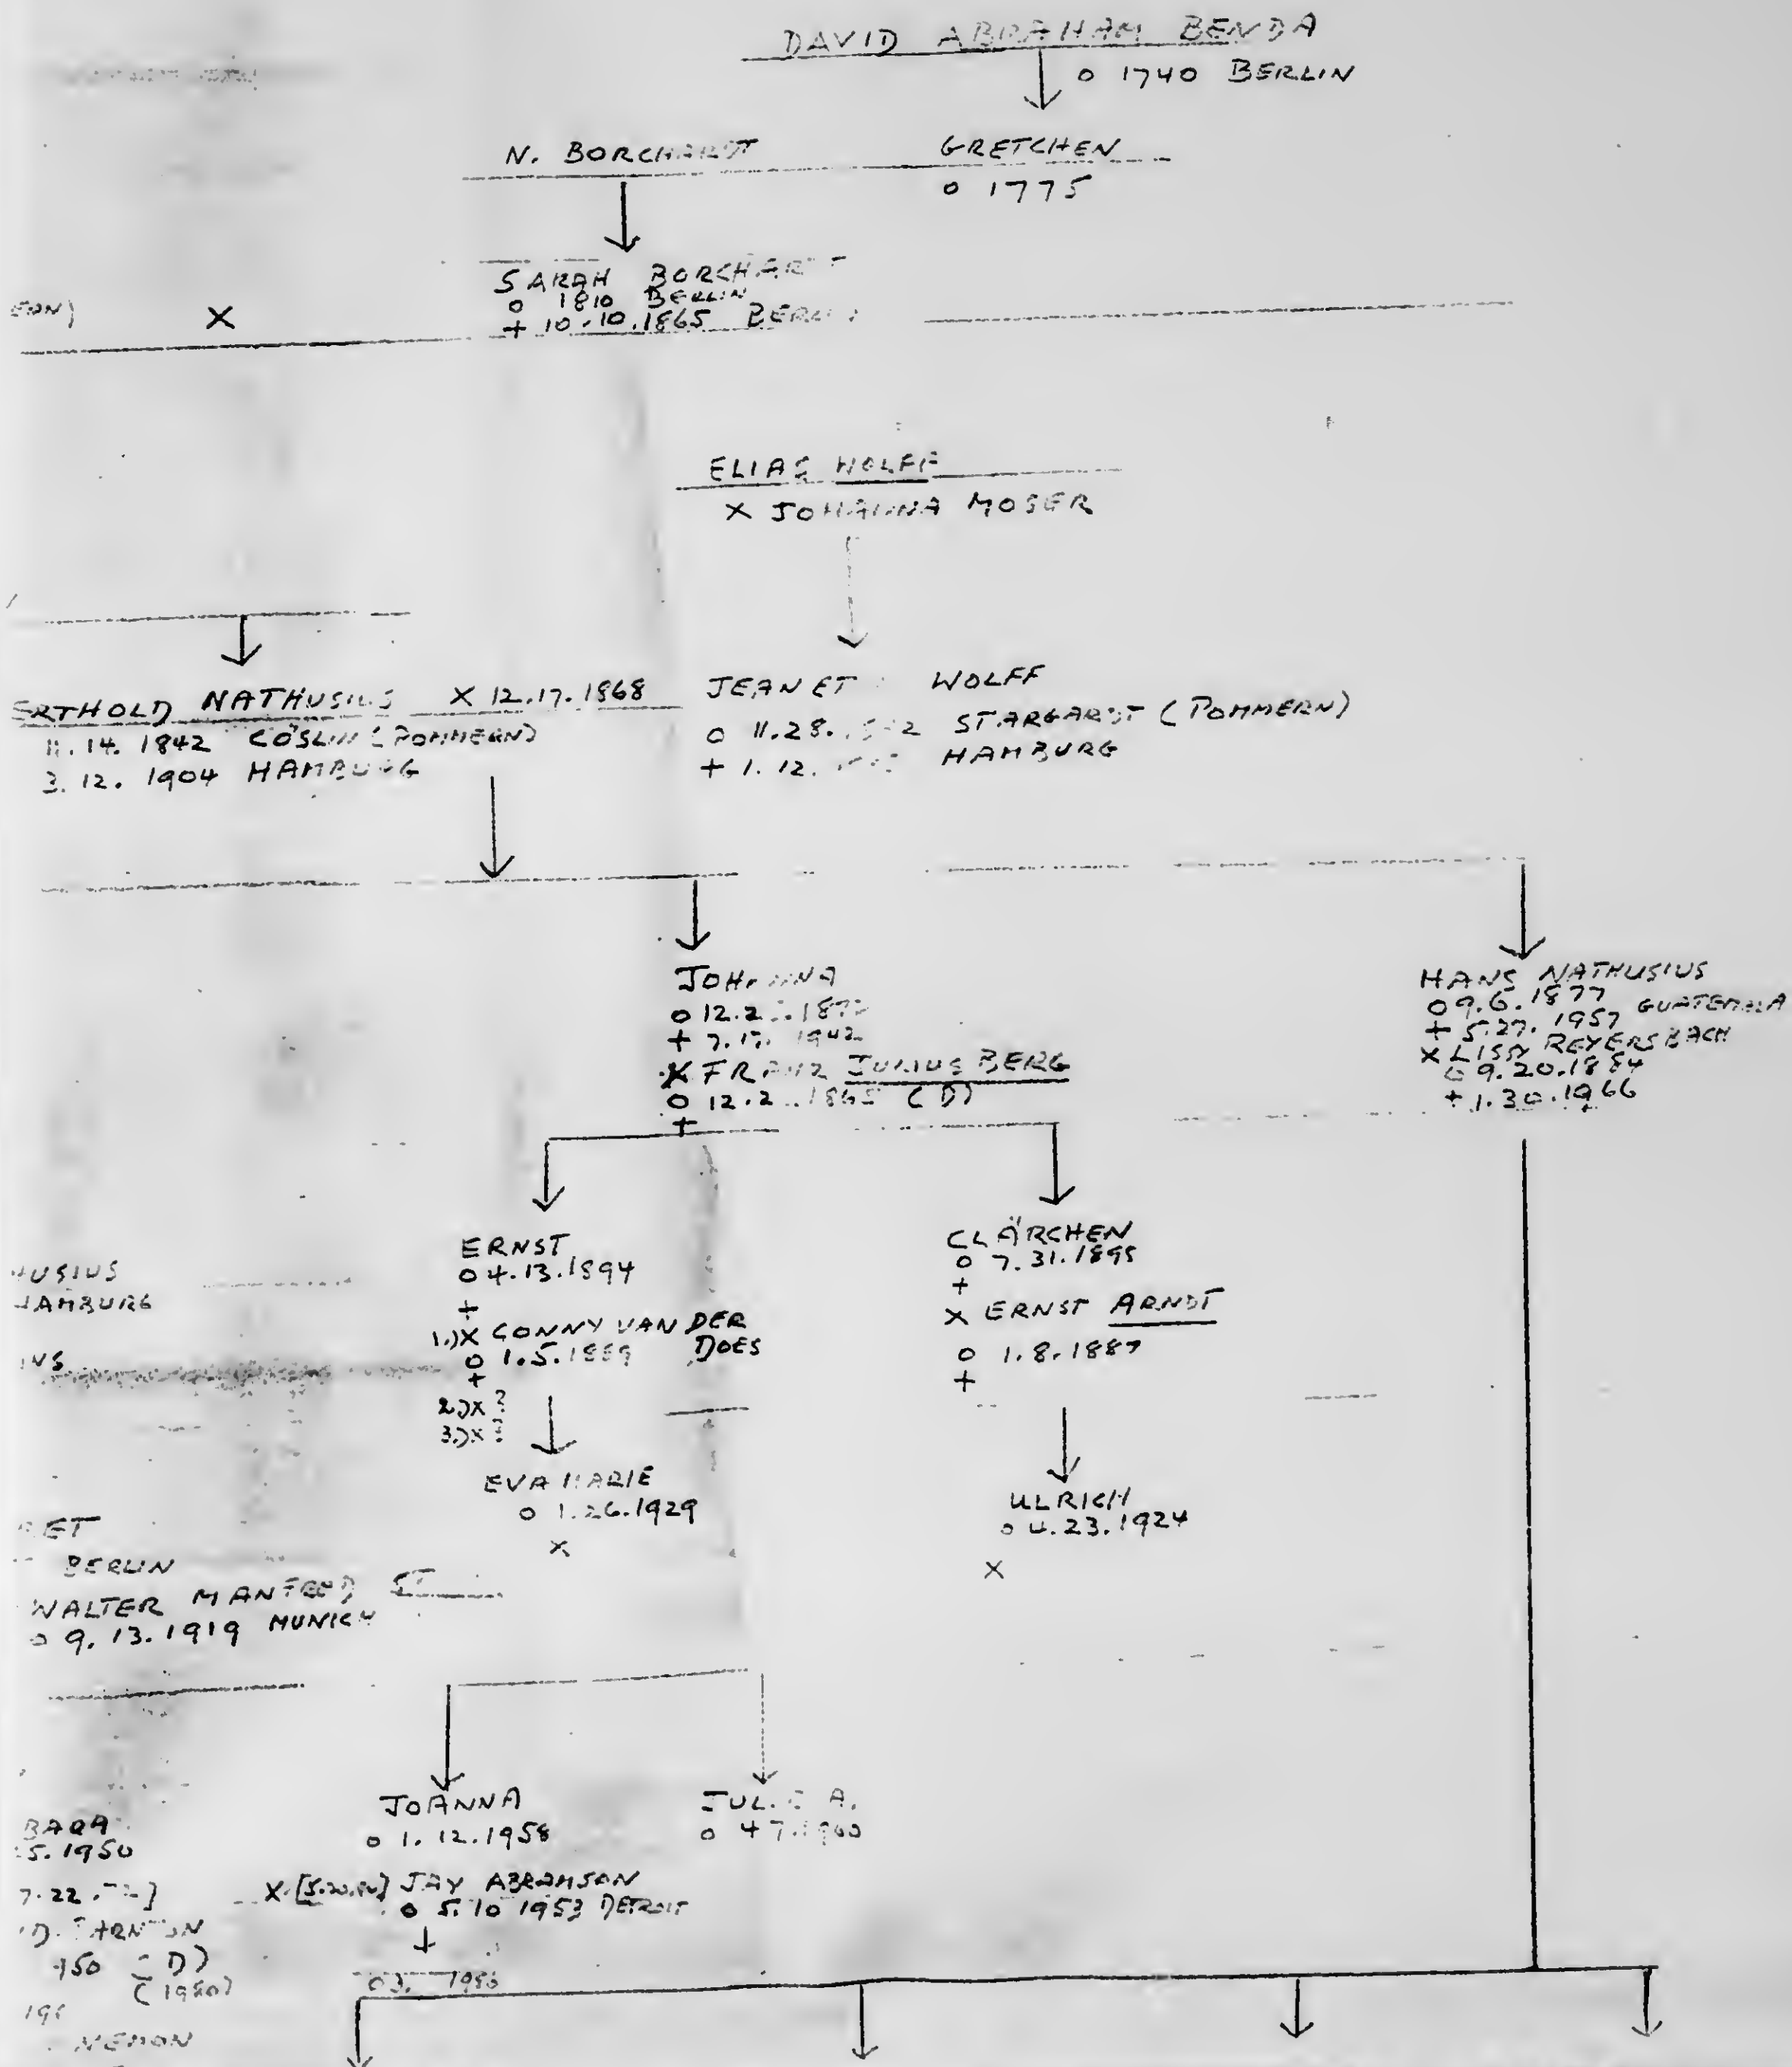 DAVID ABRAHAM BENDA
o 1740 BERLIN
N. BORCHARDT
GRETCHEN
o 1775
SARAH BORCHARDT
o 1810 BERLIN
+ 10.10.1865 BERLIN
X
ELIAS WOLFF
X JOHANNA MOSER
ERTHOLD NATHUSIUS X 12.17.1868
11.14.1842 CÖSLIN (POMMERN)
3.12.1904 HAMBURG
JEANET WOLFF
o 11.28. STARGARDT (POMMERN)
+ 1.12. HAMBURG
JOHANNA
o 12.2
+ 1942
X FRANZ JULIUS BERG
o 12.2 1865 (D)
+
HANS NATHUSIUS
o 9.6.1877 GUATEMALA
+ 5.27.1957
X LISSY REYERSBACH
o 9.20.1884
+ 1.30.1966
ERNST
o 4.13.1894
+
1.)X CONNY VAN DER DOES
o 1.5.
+
2.)X ?
3.)X ?
CLÄRCHEN
o 7.31.1895
+
X ERNST ARNDT
o 1.8.1887
+
HUSIUS
HAMBURG
EVA MARIE
o 1.26.1929
X
ULRICH
o 4.23.1924
X
RET
BERLIN
WALTER MANFRED
o 9.13.1919 MUNICH
JOANNA
o 1.12.1958
X JAY ABRAMSON
o 5.10 1953 DETROIT
o 3.
A.
o 4 7.1960
BARA
5.1950
7.22
950 D)